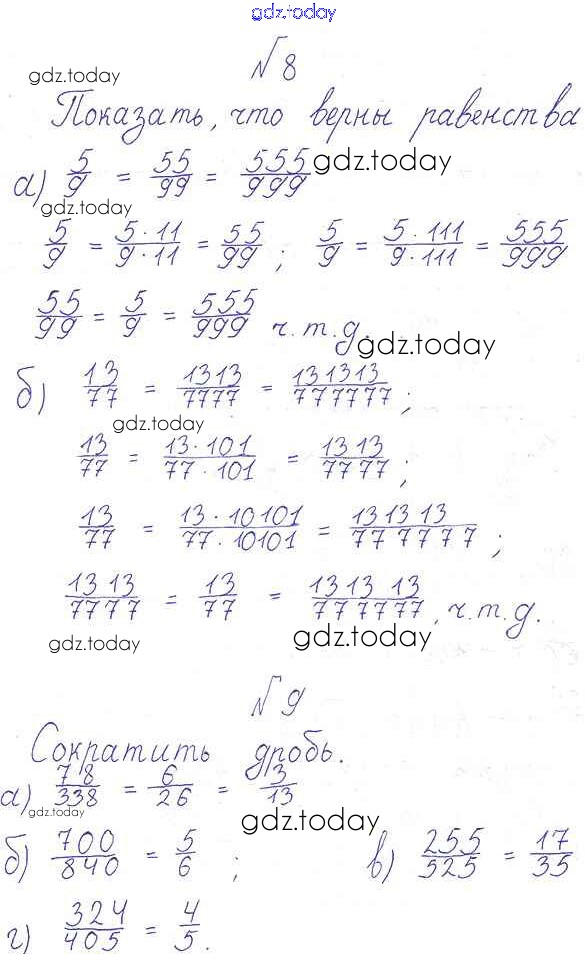 gdz.today
№ 8
gdz.today
Показать, что верны равенства
а) 5/9 = 55/99 = 555/999 gdz.today
gdz.today
5/9 = 5·11/9·11 = 55/99 ; 5/9 = 5·111/9·111 = 555/999
55/99 = 5/9 = 555/999 ч.т.д.
gdz.today
б) 13/77 = 1313/7777 = 131313/777777 ;
gdz.today
13/77 = 13·101/77·101 = 1313/7777 ;
13/77 = 13·10101/77·10101 = 131313/777777 ;
1313/7777 = 13/77 = 131313/777777, ч.т.д.
gdz.today gdz.today
№ 9
Сократить дробь.
а) 78/338 = 6/26 = 3/13
gdz.today gdz.today
б) 700/840 = 5/6 ; в) 255/525 = 17/35
г) 324/405 = 4/5.